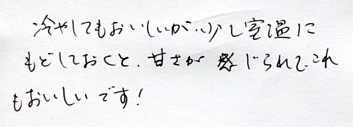 冷やしてもおいしいが、少し室温に
もどしておくと、甘さが感じられて、これ
もおいしいです!